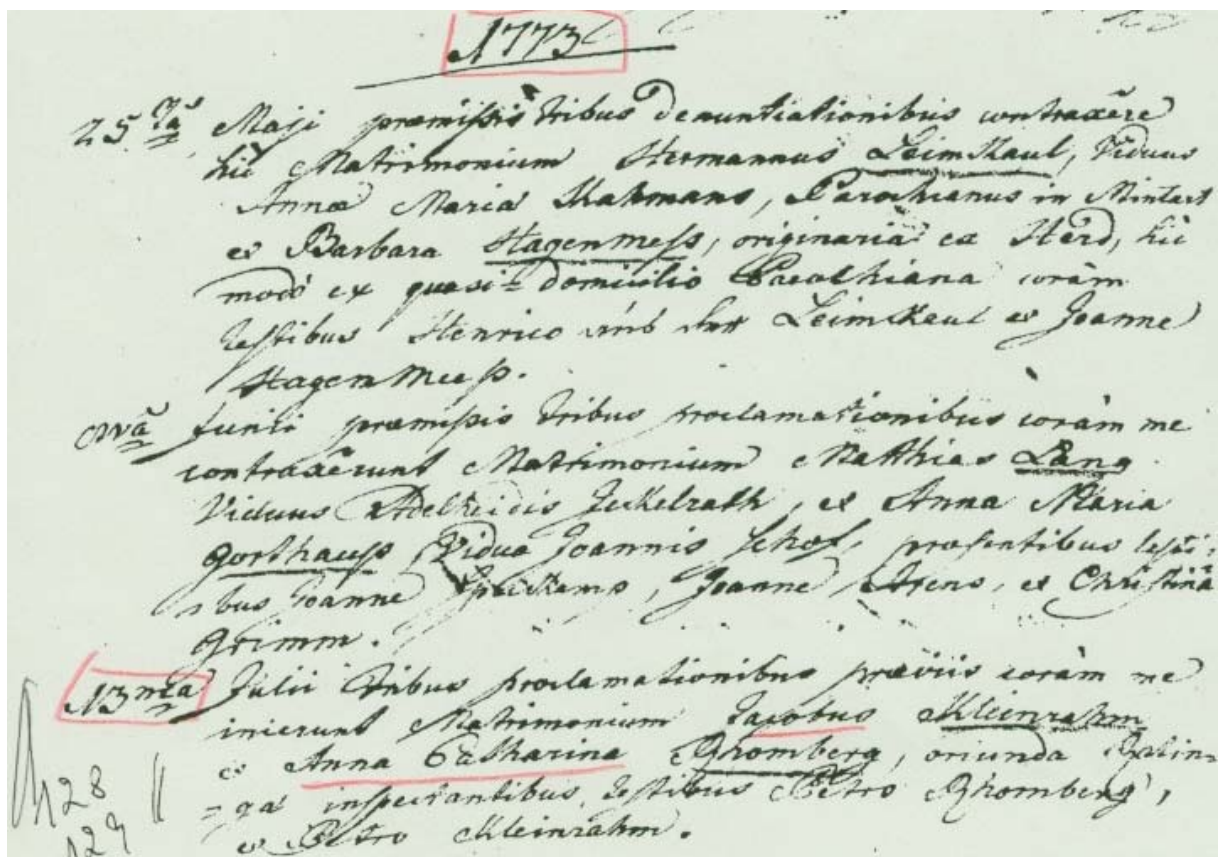 1773
25 ta Maji præmissis tribus denuntiationibus contraxêre
hic Matrimonium Hermannus Leimkaul, Viduus
Annæ Maria Kahmans, Parochianus in Mintart
et Barbara Hagenmess, originaria ex Herd, hic
modò ex quasi- domicilio Parochiana coràm
testibus Henrico Leimkaul et Joanne
Hagenmess.
Junii præmissis tribus proclamationibus coràm me
contraxêrunt Matrimonium Matthias Lang
Viduus Adelheidis Jeckelrath, et Anna Maria
Gorthauss Vidua Joannis Schof, præsentibus testi:
bus Joanne, Joanne Arens, et Christina
Grimm.
13 tia Julii tribus proclamationibus præviis coràm me
inierunt Matrimonium Jacobus Kleinrahm
et Anna Catharina Rhomberg, oriunda Ratin=
=ga inspectantibus testibus Petro Rhomberg,
et Petro Kleinrahm.
128
129